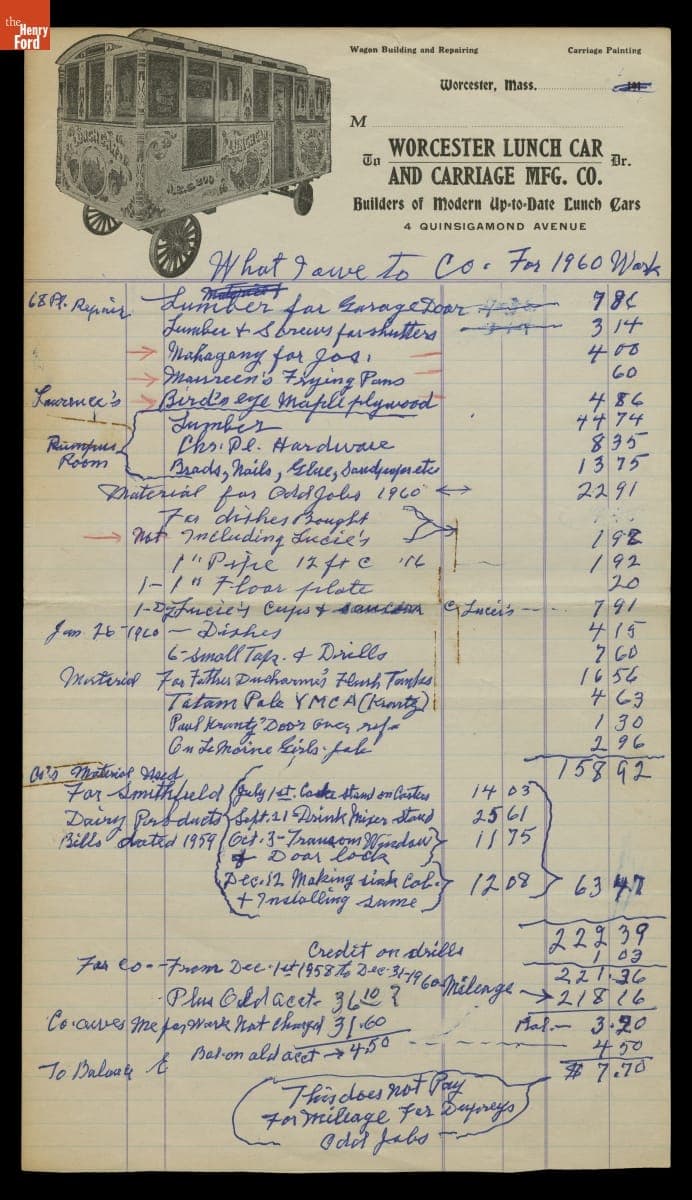 the Henry Ford
Wagon Building and Repairing Carriage Painting
Worcester, Mass. 191
M
To WORCESTER LUNCH CAR Dr.
AND CARRIAGE MFG. CO.
Builders of Modern Up-to-Date Lunch Cars
4 QUINSIGAMOND AVENUE
LUNCH CAR
LUNCH
What I owe to Co. For 1960 Work
68 Pl. Repair Lumber for Garage Door 7 86
Lumber & Screws for shutters 3 14
Mahogany for Jos. 4 00
Maureen's Frying Pans 60
Lawrence's Bird's eye Maple plywood 4 86
Lumber 44 74
Rumpus Room Chr. Pl. Hardware 8 35
Brads, Nails, Glue, Sandpaper etc 13 75
Material for Odd Jobs 1960 22 91
For dishes Bought
Not Including Lucie's 1 98
1" Pipe 12 ft @ .16 1 92
1 - 1" Floor plate 20
1-Dz Lucie's Cups & saucers @ Lucie's 7 91
Jan. 26-1960 - Dishes 4 15
6-small Taps. & Drills 7 60
Material For Father Ducharme's Flush Tanks 16 56
Tatam Pole YMCA (Krantz) 4 63
Paul Krantz' Door over ref- 1 30
On LeMoine Girls job 2 96
158 92
Co's Material Used
For Smithfield July 1st. stand on Casters 14 03
Dairy Products Sept. 21-Drink Mixer stand 25 61
Bills dated 1959 Oct. 3-Transom Window 11 75
& Door lock
Dec. 12 Making sink Cob. 12 08 63 47
& Installing same
222 39
Credit on drills 1 03
For Co.--From Dec. 1st 1958 To Dec-31-1960 221.36
Mileage → 218 16
Plus Old acct- 36 10 ?
Co. owes Me for Work Not Charged 31.60 Bal.- 3.20
Bal. on old acct → 4.50 4 50
To Balance $ 7.70
This does not Pay
For Mileage For Dupreys
Odd Jobs